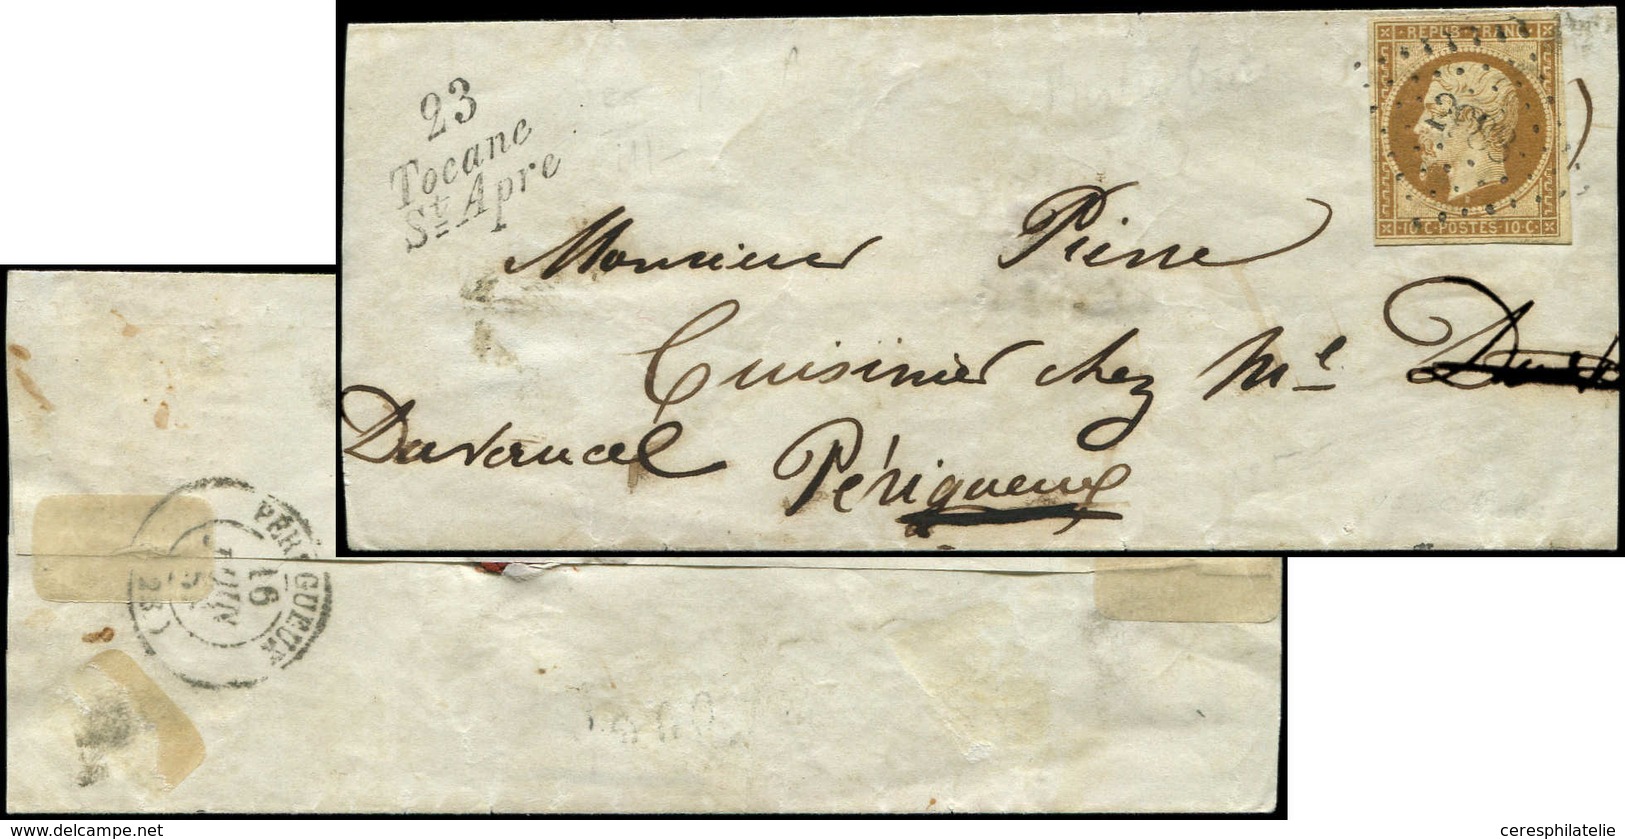 23
Tocane
St Apre
REPUB. FRANC.
10·C·POSTES·10·C·
Monsieur Pierre
Cuisinier chez Me
Davancel
Périgueux
PÉRIGUEUX
16
JUIN
(23)
www.delcampe.net
ceresphilatelie